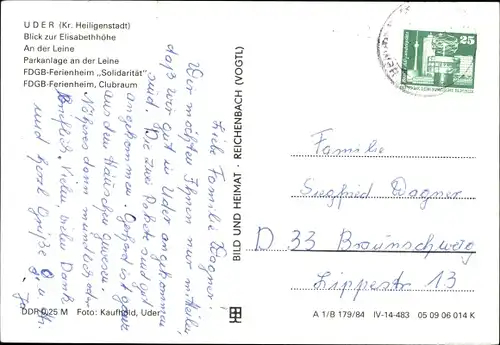 UDER (Kr. Heiligenstadt)
Blick zur Elisabethhöhe
An der Leine
Parkanlage an der Leine
FDGB-Ferienheim „Solidarität"
FDGB-Ferienheim, Clubraum
Liebe Familie Wagner!
Wir möchten Ihnen nur mitteilen,
daß wir gut in Uder angekommen
sind. Die zwei Pakete sind gut
angekommen. Gerhard ist ganz
aus dem Häuschen gewesen.
Näheres dann mündlich oder
brieflich. Vielen, vielen Dank
und herzl. Grüße
BILD UND HEIMAT · REICHENBACH (VOGTL)
25
Familie
Siegfried Wagner
D 33 Braunschweig
Lippestr. 13
DDR 0,25 M Foto: Kaufhold, Uder
A 1/B 179/84 IV-14-483 05 09 06 014 K